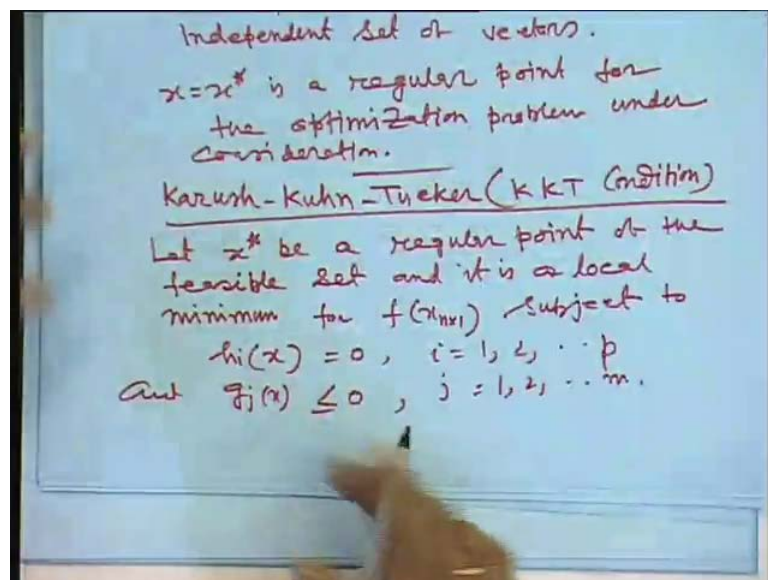 Independent set of vectors.
x=x* is a regular point for
the optimization problem under
consideration.
Karush-Kuhn-Tucker (KKT Condition)
Let x* be a regular point of the
feasible set and it is a local
minimum for f(xₙₓ₁) subject to
hi(x) = 0, i = 1, 2, ·· p
and gj(x) ≤ 0, j = 1, 2, ·· m.